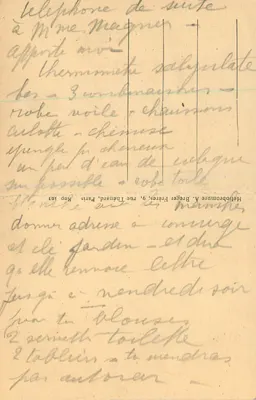 telephone de suite
à Mme Magner -
apporte moi
thermometre salycilate
bas - 3 combinaisons -
robe voile - chaussons
culotte - chemise
epingle à cheveux
un peu d'eau de cologne
si possible - robe toile
donner adresse à concierge
et clé jardin - et dire
qu'elle renvoie lettre
jusqu'à vendredi soir
pour tes blouses
2 serviettes toilette
2 tabliers - tu viendras
par autocar -
Héliobromure A. Breger Frères, 9, rue Thénard, Paris